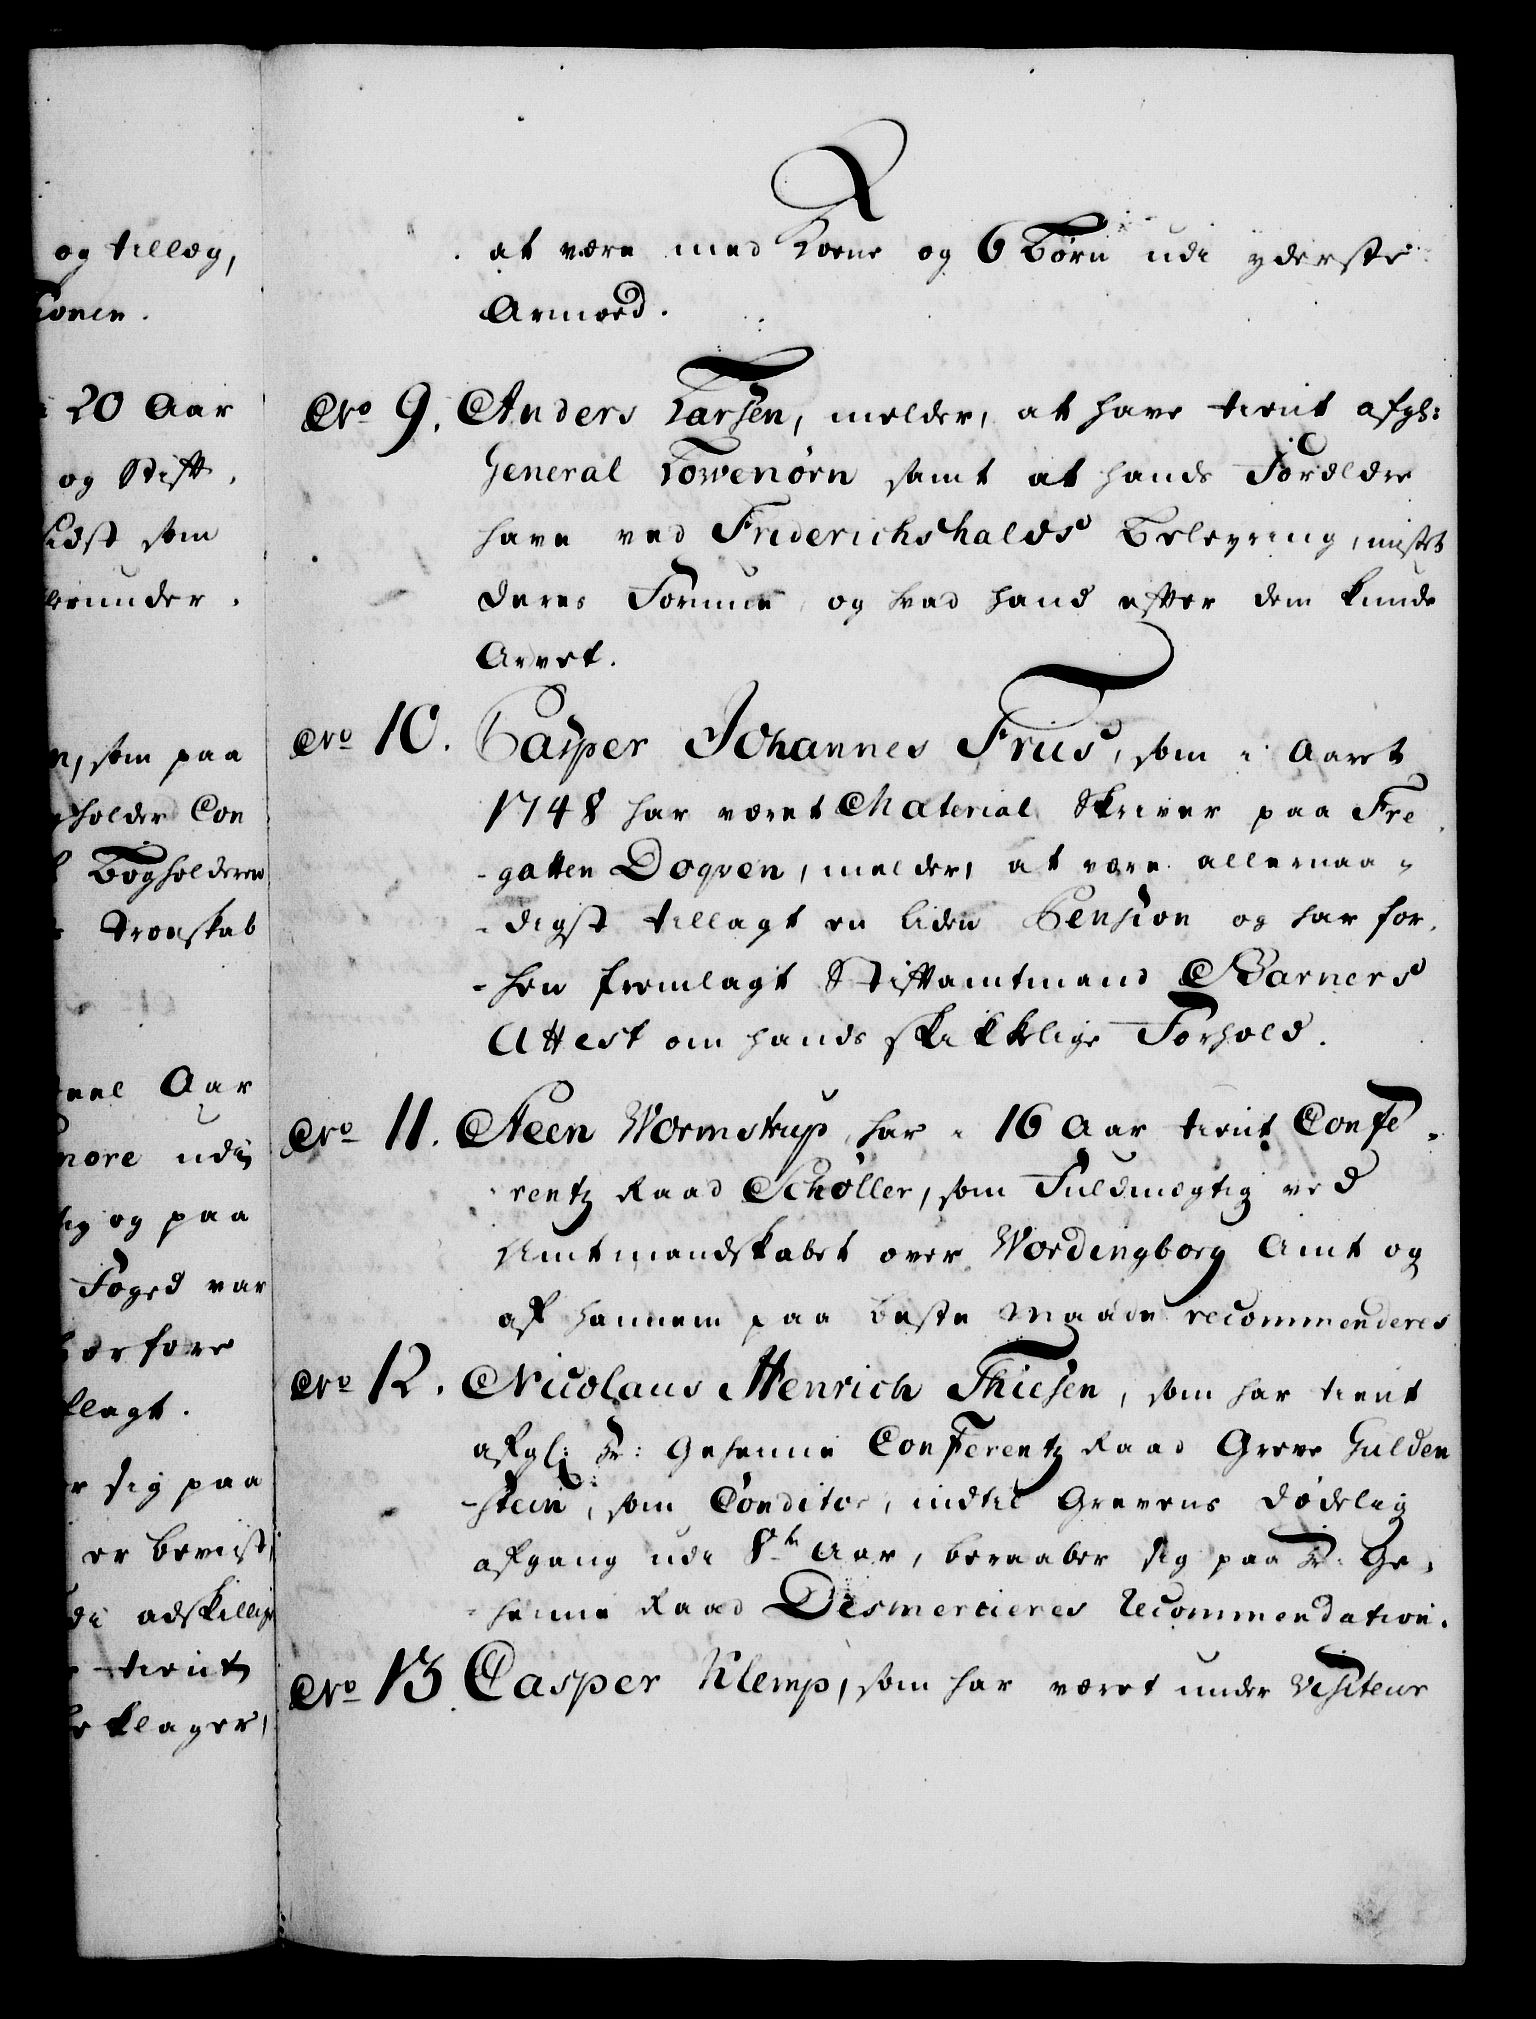 og tillæg,
konen.
20 Aar
og Stift,
sidst som
herunder.
som paa
holder Con
Bogholderen
Troeskab
Aar
more udi
og paa
Foged var
derfore
llagt.
sig paa
er beviist,
udi adskillige
tient
klager,
at være med Kone og 6 Børn udi yderste
Armoed.
No 9. Anders Larsen, melder, at have tient afgl:
General Lowenörn samt at hands Forældre
have ved Friderichshalds Beleyring, mistet
deres Formue og hvad hand efter dem kunde
Arvet.
No 10. Casper Johannes Friis, som i Aaret
1748 har været Material Skriver paa Fre
-gatten Doqven, melder, at være allernaa-
-digst tillagt en liden Pension og har for-
-hen fremlagt Stiftamtmand Barners
Attest om hands skikkelige Forhold.
No 11. Steen Wormstrup har i 16 Aar tient Confe-
rentz Raad Schøller, som Fuldmegtig ved
Amtmandskabet over Wordingborg Amt og
af hannem paa beste Maade recommenderes
No 12. Nicolaus Henrich Thiesen, som har tient
afgl: Hr: Geheime Conferentz Raad Greve Gulden
-stein, som Conditor, indtil Grevens dödelig
afgang udi 8te Aar, beraaber sig paa Hr: Ge-
-heime Raad Desmercieres Recommendation.
No 13 Casper Klemp, som har været under Visiteur